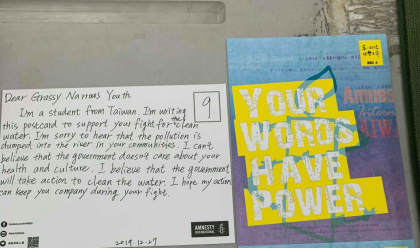 Dear Grassy Narrows Youth
I'm a student from Taiwan. I'm writing
this postcard to support your fight for the clean
water. I'm sorry to hear that the pollution is
dumped into the river in your communities. I can't
believe that the government doesn't care about your
health and culture. I believe that the government
will take action to clean the water. I hope my action
can keep you company during your fight.
9
2019.12.27
AMNESTY
INTERNATIONAL
YOUR
WORDS
HAVE
POWER